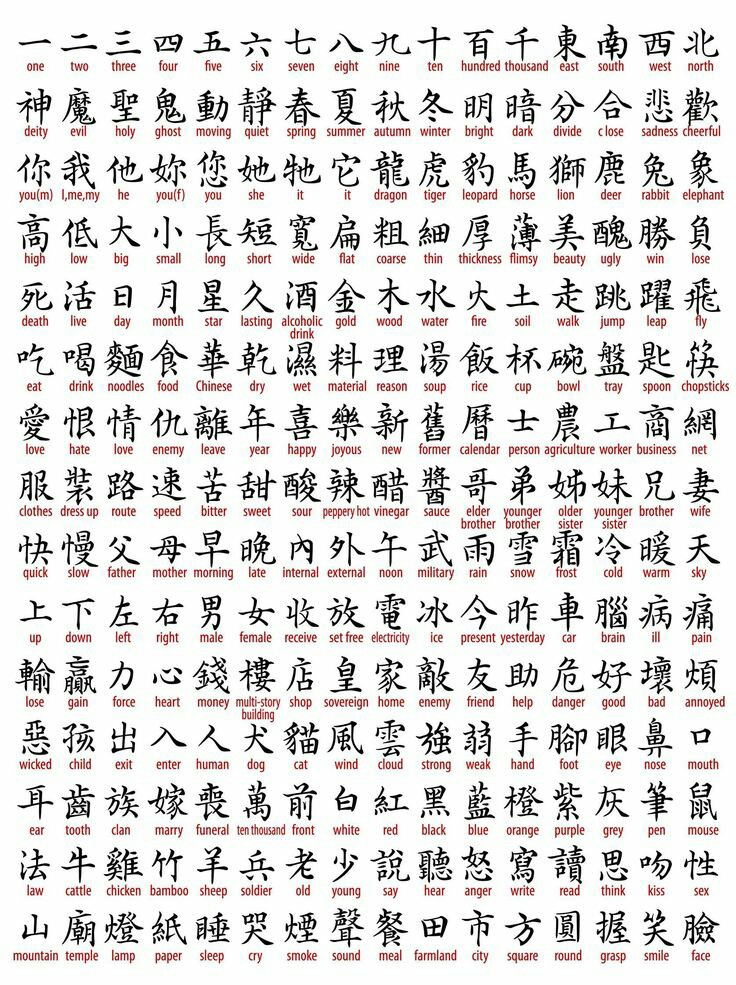 一 二 三 四 五 六 七 八 九 十 百 千 東 南 西 北
one two three four five six seven eight nine ten hundred thousand east south west north
神 魔 聖 鬼 動 靜 春 夏 秋 冬 明 暗 分 合 悲 歡
deity evil holy ghost moving quiet spring summer autumn winter bright dark divide c lose sadness cheerful
你 我 他 妳 您 她 牠 它 龍 虎 豹 馬 獅 鹿 兔 象
you(m) I,me,my he you(f) you she it it dragon tiger leopard horse lion deer rabbit elephant
高 低 大 小 長 短 寬 扁 粗 細 厚 薄 美 醜 勝 負
high low big small long short wide flat coarse thin thickness flimsy beauty ugly win lose
死 活 日 月 星 久 酒 金 木 水 火 土 走 跳 躍 飛
death live day month star lasting alcoholic drink gold wood water fire soil walk jump leap fly
吃 喝 麵 食 華 乾 濕 料 理 湯 飯 杯 碗 盤 匙 筷
eat drink noodles food Chinese dry wet material reason soup rice cup bowl tray spoon chopsticks
愛 恨 情 仇 離 年 喜 樂 新 舊 曆 士 農 工 商 網
love hate love enemy leave year happy joyous new former calendar person agriculture worker business net
服 裝 路 速 苦 甜 酸 辣 醋 醬 哥 弟 姊 妹 兄 妻
clothes dress up route speed bitter sweet sour peppery hot vinegar sauce elder brother younger brother older sister younger sister brother wife
快 慢 父 母 早 晚 內 外 午 武 雨 雪 霜 冷 暖 天
quick slow father mother morning late internal external noon military rain snow frost cold warm sky
上 下 左 右 男 女 收 放 電 冰 今 昨 車 腦 病 痛
up down left right male female receive set free electricity ice present yesterday car brain ill pain
輸 贏 力 心 錢 樓 店 皇 家 敵 友 助 危 好 壞 煩
lose gain force heart money multi-story building shop sovereign home enemy friend help danger good bad annoyed
惡 孩 出 入 人 犬 貓 風 雲 強 弱 手 腳 眼 鼻 口
wicked child exit enter human dog cat wind cloud strong weak hand foot eye nose mouth
耳 齒 族 嫁 喪 萬 前 白 紅 黑 藍 橙 紫 灰 筆 鼠
ear tooth clan marry funeral ten thousand front white red black blue orange purple grey pen mouse
法 牛 雞 竹 羊 兵 老 少 說 聽 怒 寫 讀 思 吻 性
law cattle chicken bamboo sheep soldier old young say hear anger write read think kiss sex
山 廟 燈 紙 睡 哭 煙 聲 餐 田 市 方 圓 握 笑 臉
mountain temple lamp paper sleep cry smoke sound meal farmland city square round grasp smile face